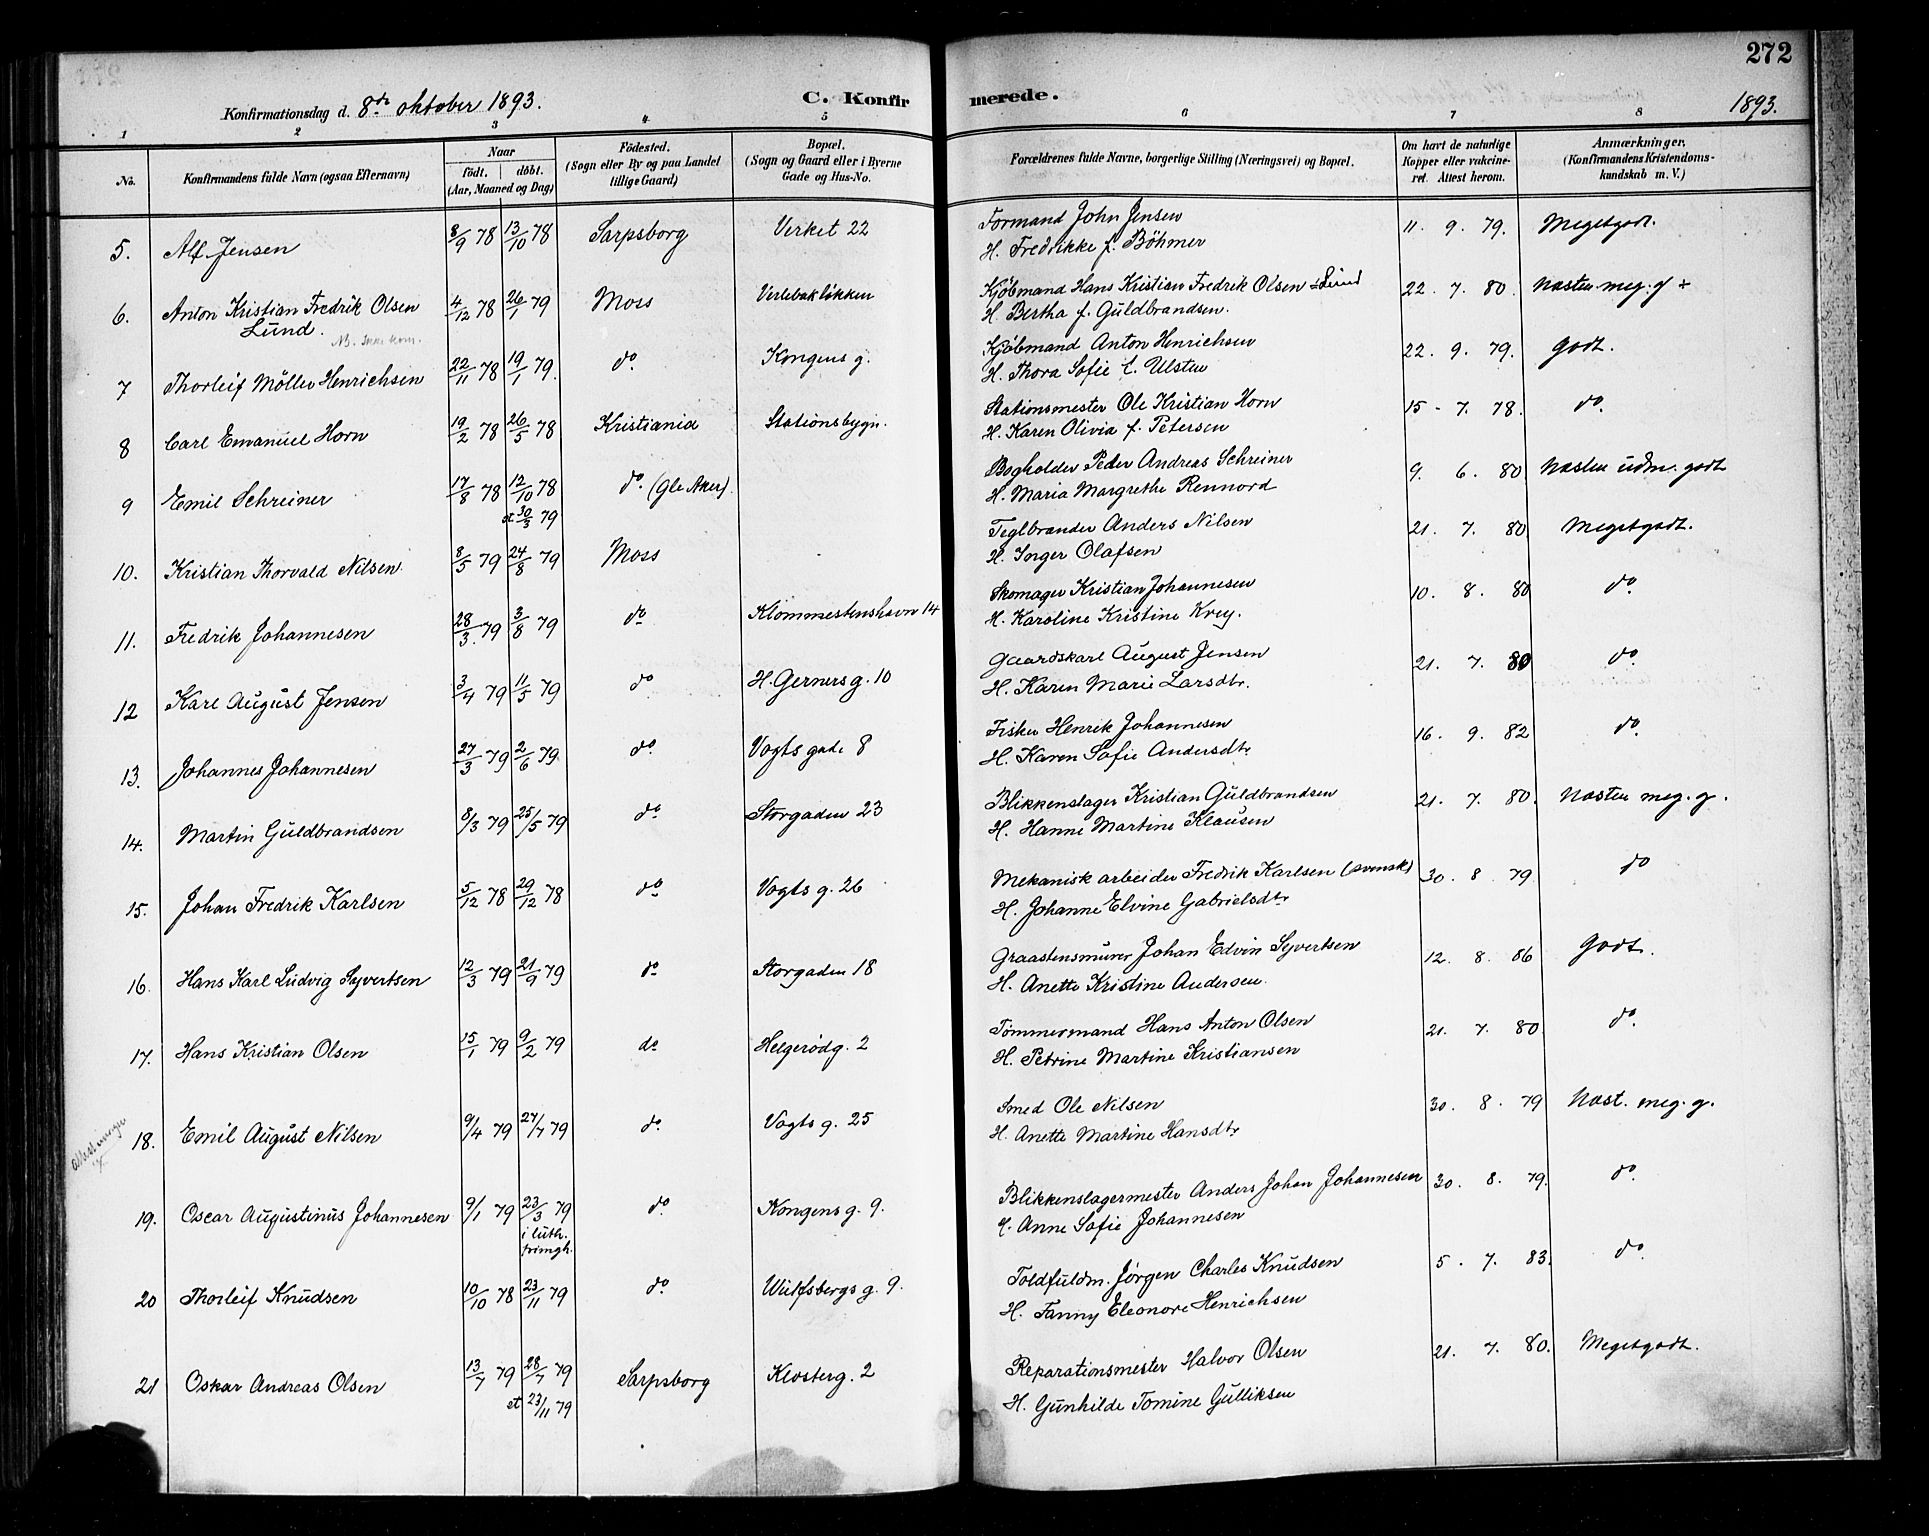 272
Konfirmationsdag d. 8de oktober 1893.
C. Konfirmerede.
1893.
1 2 3 4 5 6 7 8
No.
Konfirmandens fulde Navn (ogsaa Efternavn)
Naar
født. | døbt.
(Aar, Maaned og Dag)
Fødested.
(Sogn eller By og paa Landet
tillige Gaard)
Bopæl.
(Sogn og Gaard eller i Byerne
Gade og Hus-No.
Forældrenes fulde Navne, borgerlige Stilling (Næringsvei) og Bopæl.
Om havt de naturlige
Kopper eller vakcine-
ret. Attest herom.
Anmærkninger.
(Konfirmandens Kristendoms-
kundskab m. V.)
5. Alf Jensen 8/9 78 13/10 78 Sarpsborg Verket 22 Formand John Jensen 11. 9. 79. Megetgodt.
H. Fredrikke f. Böhmer
6. Anton Kristian Fredrik Olsen 4/12 78 26/1 79 Moss Verlebakløkken Kjøbmand Hans Kristian Fredrik Olsen Lund 22. 7. 80. Næsten meg. g +
Lund. H. Bertha f. Guldbrandsen.
NB. Ikke kom.
7 Thorleif Möller Henrichsen 22/11 78 19/1 79. do. Kongens g. Kjøbmand Anton Henrichsen 22. 9. 79. Godt.
H. Thora Sofie f. Ulsten
8 Carl Emanuel Horn 19/2 78 26/5 78 Kristiania Stationsbygn. Stationsmester Ole Kristian Horn 15 - 7. 78. do.
H. Karen Olivia f. Petersen
9 Emil Schreiner 17/8 78 12/10 78 do. (Gle Aker). Bogholder Peder Andreas Schreiner 9. 6. 80 Næsten udm. godt
et 30/3 79 H. Maria Margrethe Rennord
10. Kristian Thorvald Nilsen 8/5 79 24/8 79 Moss Teglbrænder Anders Nilsen 21. 7. 80 Megetgodt.
H. Inger Olafsen
11. Fredrik Johannesen 28/3. 79 3/8 79 do Klommestenshavn 14 Skomager Kristian Johannesen 10. 8. 80 do.
H. Karoline Kristine Krey.
12 Karl August Jensen 3/4 79 11/5 79 do H. Gerners g. 10 Gaardskarl August Jensen 21. 7. 80 do.
H. Karen Marie Larsdtr.
13. Johannes Johannesen 27/3 79 2/6 79. do. Vogts gade 8 Fisker Henrik Johannesen 16. 9. 82 do.
H. Karen Sofie Andersdtr
14. Martin Guldbrandsen 8/3 79 25/5 79 do. Storgaden 23 Blikkenslager Kristian Guldbrandsen 21. 7. 80. Næsten meg. g.
H. Hanne Martine Klausen
15. Johan Fredrik Karlsen 5/12 78 29/12 78 do Vogts g. 26 Mekanisk arbeider Fredrik Karlsen (svensk) 30. 8 79 do
H. Johanne Elvine Gabrielsdtr
16. Hans Karl Ludvig Syvertsen 12/3 79 21/9 79 do Storgaden 18 Graastensmurer Johan Edvin Syvertsen 12. 8. 86 Godt.
H. Anette Kristine Andersen.
17. Hans Kristian Olsen 15/1 79 9/2 79 do Helgerødg. 2 Tømmermand Hans Anton Olsen 21. 7. 80. do.
H. Petrine Martine Kristiansen
18. Emil August Nilsen 9/4 79 27/7 79 do. Vogts g. 25 Smed Ole Nilsen 30. 8. 79 Næst. meg. g.
H. Anette Martine Hansdtr
19. Oscar Augustinus Johannesen 9/1 79 23/3 79 do. Kongens g. 9. Blikkenslagermester Anders Johan Johannesen 30. 8. 79. do.
i luth. frimgh. H. Anne Sofie Johannesen
20 Thorleif Knudsen 10/10 78 23/11 79 do. Wulfsbergs g. 9. Toldfuldm. Jørgen Charles Knudsen 5. 7. 83. do.
H. Fanny Eleonore Henrichsen
21 Oskar Andreas Olsen 13/7 79 28/7 79 Sarpsborg Klosterg. 2 Reparationsmester Halvor Olsen 21. 7. 80. Megetgodt.
et 23/11 79 H. Gunhilde Tomine Gulliksen